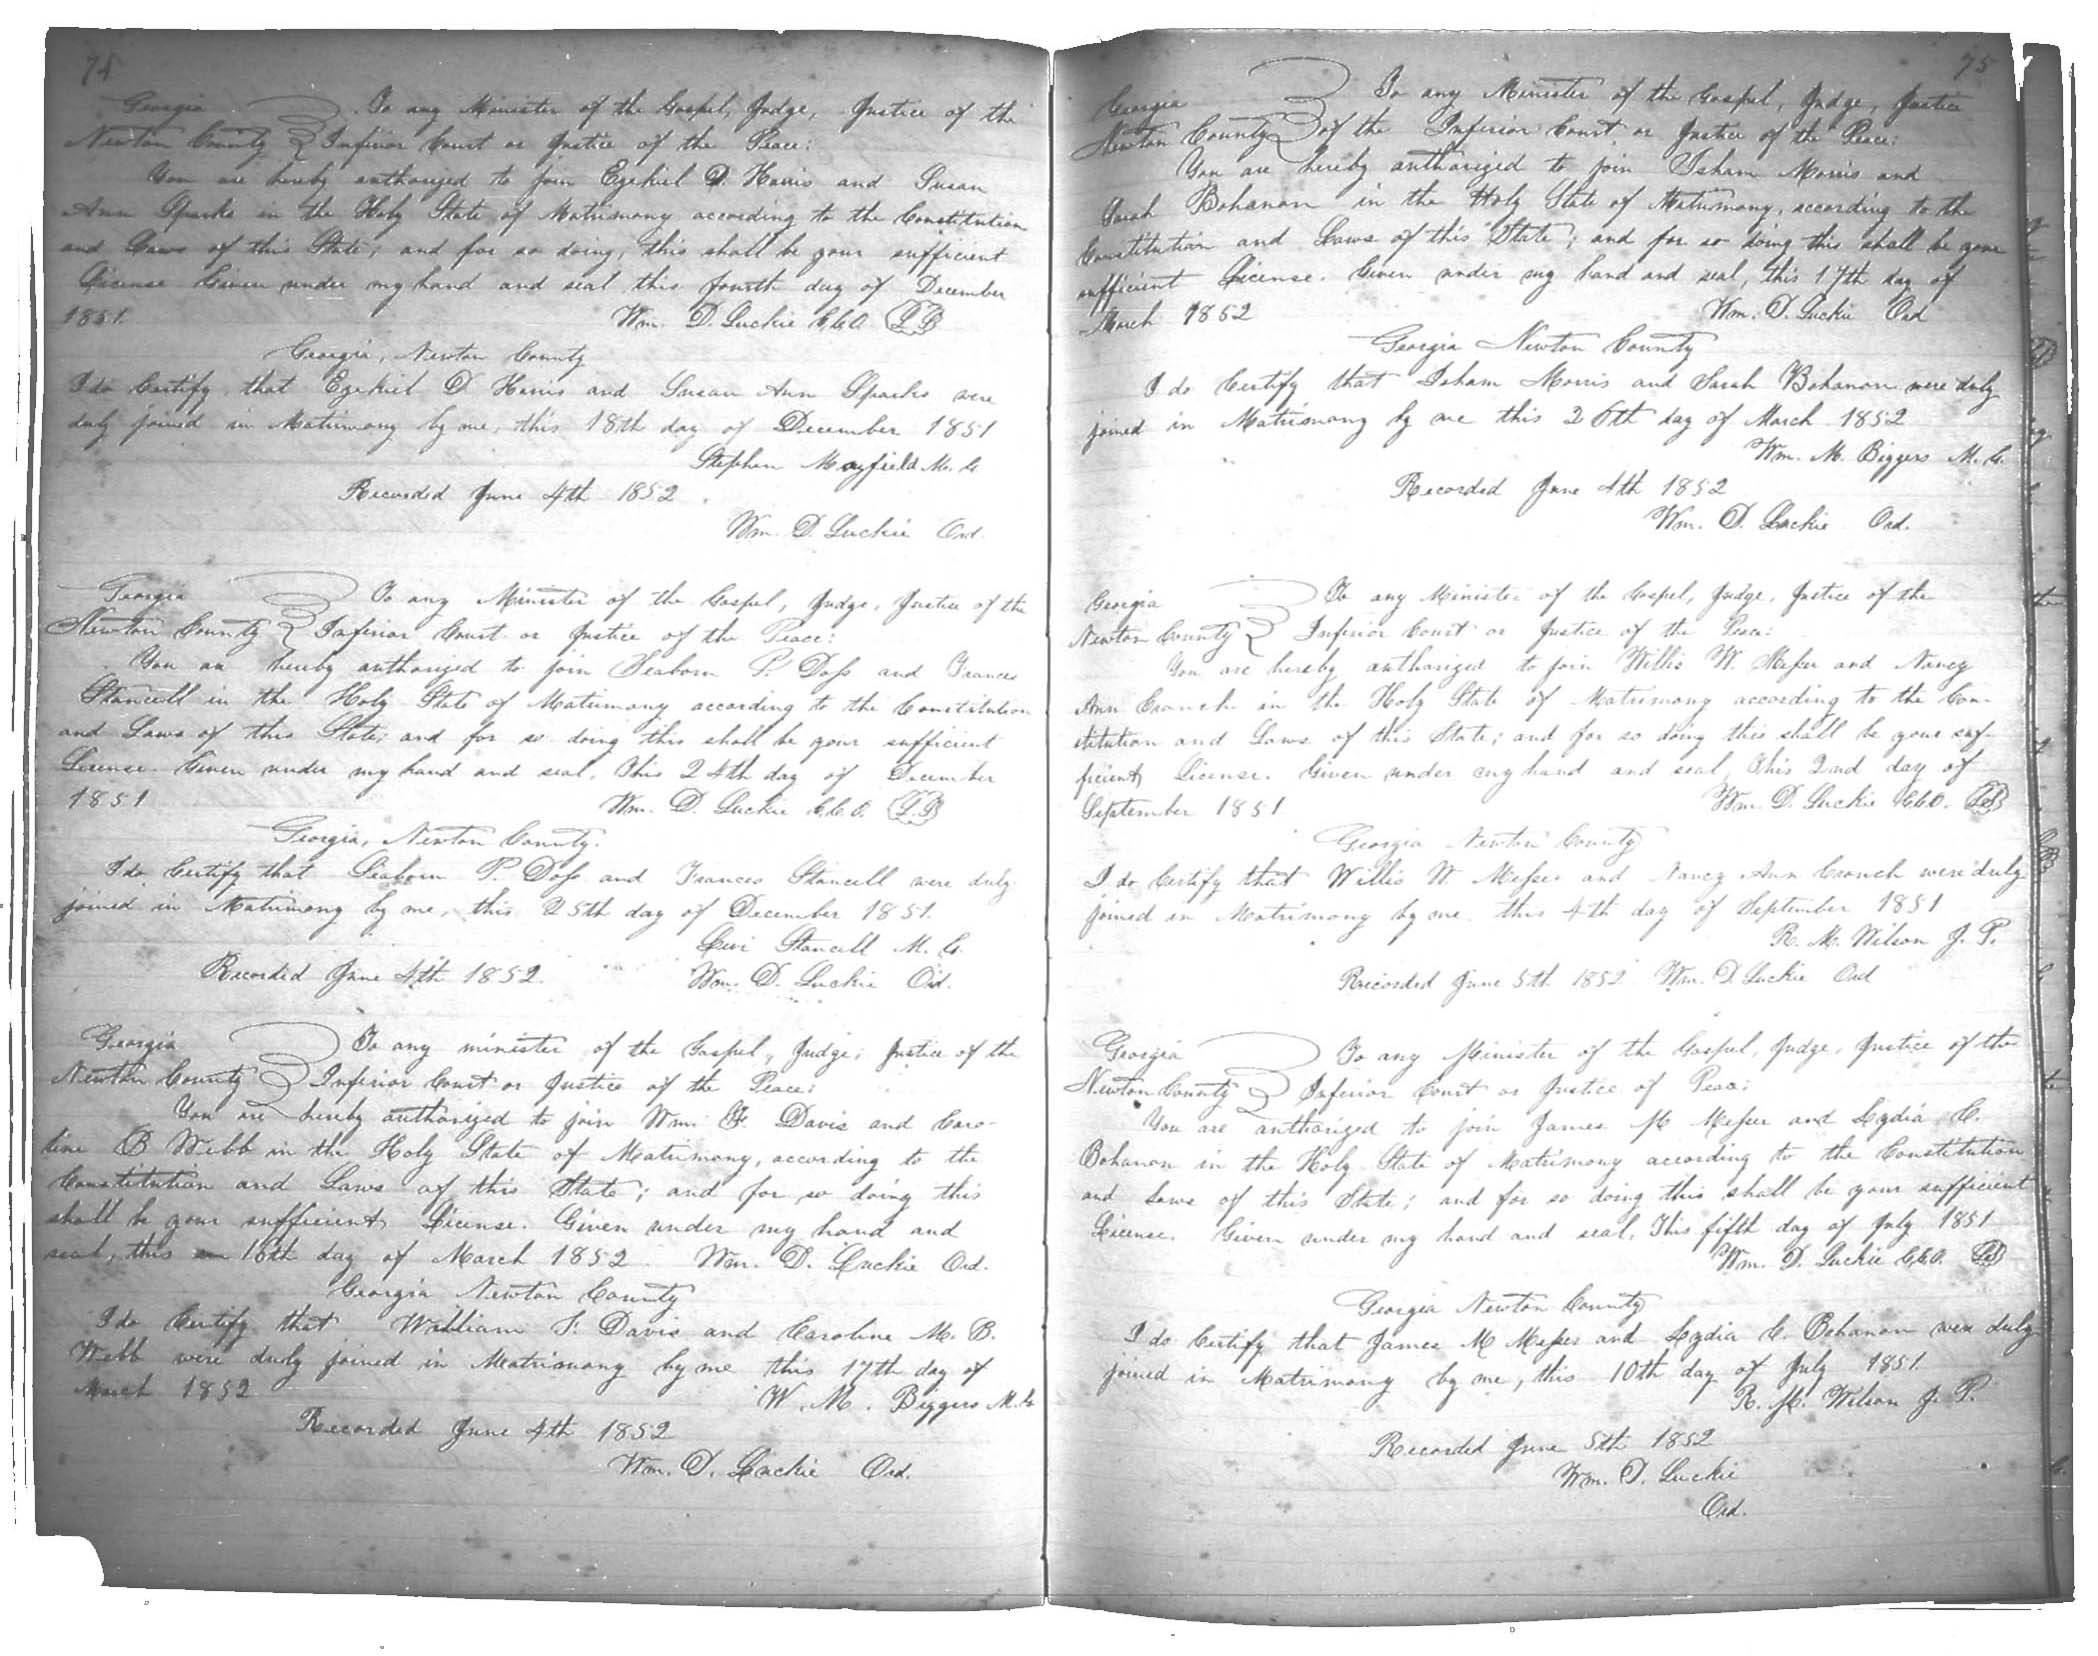 74
Georgia To any Minister of the Gospel, Judge, Justice of the
Newton County Inferior Court or Justice of the Peace:
You are hereby authorized to join Ezekiel D. Harris and Susan
Ann Sparks in the Holy State of Matrimony according to the Constitution
and Laws of this State; and for so doing, this shall be your sufficient
License Given under my hand and seal this fourth day of December
1851. Wm. D. Luckie C.C.O.
Georgia, Newton County
I do Certify that Ezekiel D Harris and Susan Ann Sparks were
duly joined in Matrimony by me, this 18th day of December 1851
Stephen Mayfield M. G.
Recorded June 4th 1852
Wm. D. Luckie Ord.
Georgia To any Minister of the Gospel, Judge, Justice of the
Newton County Inferior Court or Justice of the Peace:
You are hereby authorized to join Seaborn P. Doss and Frances
Stancell in the Holy State of Matrimony according to the Constitution
and Laws of this State; and for so doing this shall be your sufficient
License. Given under my hand and seal. This 24th day of December
1851 Wm. D. Luckie C.C.O.
Georgia, Newton County.
I do Certify that Seaborn P. Doss and Frances Stancell were duly
joined in Matrimony by me, this 25th day of December 1851.
Levi Stancell M. G.
Recorded June 4th 1852. Wm. D. Luckie Ord.
Georgia To any minister of the Gospel, Judge, Justice of the
Newton County Inferior Court or Justice of the Peace:
You are hereby authorized to join Wm. F. Davis and Caro-
line B Webb in the Holy State of Matrimony, according to the
Constitution and Laws of this State; and for so doing this
shall be your sufficient License. Given under my hand and
seal, this 16th day of March 1852 Wm. D. Luckie Ord.
Georgia Newton County
I do Certify that William F. Davis and Caroline M. B.
Webb were duly joined in Matrimony by me this 17th day of
March 1852 W. M. Biggers M. G.
Recorded June 4th 1852
Wm. D. Luckie Ord.
75
Georgia To any Minister of the Gospel, Judge, Justice
Newton County of the Inferior Court or Justice of the Peace:
You are hereby authorized to join Isham Morris and
Sarah Bohanon in the Holy State of Matrimony, according to the
Constitution and Laws of this State; and for so doing this shall be your
sufficient License. Given under my hand and seal, this 17th day of
March 1852 Wm. D. Luckie Ord
Georgia Newton County
I do Certify that Isham Morris and Sarah Bohanon were duly
joined in Matrimony by me this 26th day of March 1852
Wm. M. Biggers M. G.
Recorded June 4th 1852
Wm. D. Luckie Ord.
Georgia To any Minister of the Gospel, Judge, Justice of the
Newton County Inferior Court or Justice of the Peace:
You are hereby authorized to join Willis W. Messer and Nancy
Ann Crouch in the Holy State of Matrimony according to the Con-
stitution and Laws of this State; and for so doing this shall be your suf-
ficient License. Given under my hand and seal, this 2nd day of
September 1851 Wm. D. Luckie C.C.O. LS
Georgia Newton County
I do Certify that Willis W. Messer and Nancy Ann Crouch were duly
joined in Matrimony by me this 4th day of September 1851
R. M. Wilson J. P.
Recorded June 5th 1852 Wm. D. Luckie Ord
Georgia To any Minister of the Gospel, Judge, Justice of the
Newton County Inferior Court or Justice of Peace:
You are authorized to join James M Messer and Lydia C.
Bohanon in the Holy State of Matrimony according to the Constitution
and Laws of this State; and for so doing this shall be your sufficient
License. Given under my hand and seal, This fifth day of July 1851
Wm. D. Luckie C.C.O. LS
Georgia Newton County
I do Certify that James M Messer and Lydia C. Bohanon were duly
joined in Matrimony by me, this 10th day of July 1851.
R. M. Wilson J. P.
Recorded June 5th 1852
Wm. D. Luckie
Ord.